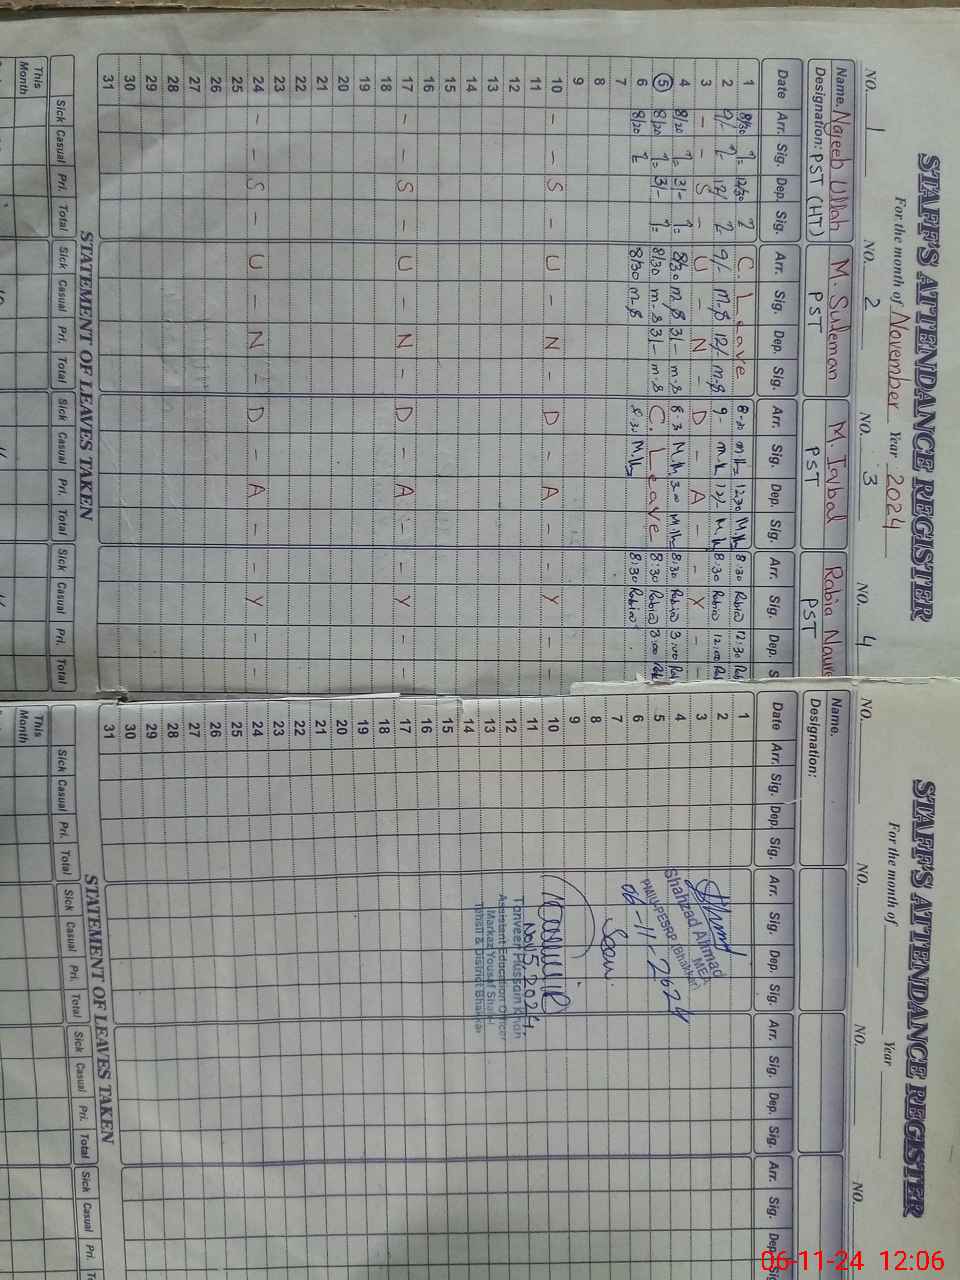 STAFF'S ATTENDANCE REGISTER
For the month of November Year 2024
NO. 1 NO. 2 NO. 3 NO. 4
Name. Najeeb Ullah M. Suleman M. Iqbal Rabia
Designation: PST (HT) PST PST PST
Date Arr. Sig. Dep. Sig. Arr. Sig. Dep. Sig. Arr. Sig. Dep. Sig. Arr. Sig. Dep. S
1 8/30 12/30 C. Leave 8-30 12-30 8:30 Rabia 12:30
2 9/- 12/- 9/- M-S 12/- M-S 9- 12/- 8:30 Rabia 12:00
3 - - S - U - N - D - A - - Y - -
4 8/20 3/- 8/30 M-S 3/- M-S 8-3 3-00 8:30 Rabia 3:00
5 8/20 3/- 8/30 M-S 3/- M-S C. Leave 8:30 Rabia 3:00
6 8/20 8/30 M-S 8-30 8:30 Rabia
7
8
9
10 - - S - U - N - D - A - - Y - -
11
12
13
14
15
16
17 - - S - U - N - D - A - - Y - -
18
19
20
21
22
23
24 - - S - U - N - D - A - - Y - -
25
26
27
28
29
30
31
STATEMENT OF LEAVES TAKEN
Sick Casual Pri. Total Sick Casual Pri. Total Sick Casual Pri. Total Sick Casual Pri. Total
This
Month
STAFF'S ATTENDANCE REGISTER
For the month of Year
NO. NO. NO. NO.
Name.
Designation:
Date Arr. Sig. Dep. Sig. Arr. Sig. Dep. Sig. Arr. Sig. Dep. Sig. Arr. Sig. Dep. Sig
1
2
3
4
5
6
7
8
9
10
11
12
13
14
15
16
17
18
19
20
21
22
23
24
25
26
27
28
29
30
31
Shahzad Ahmad
MEA
PMIU-PESRP (Bhakkar)
06-11-2024
Seen
Nov 5 2024
Tanveer Hussain Khan
Assistant Education Officer
Markaz Yousaf Shah
Tehsil & District Bhakkar
STATEMENT OF LEAVES TAKEN
Sick Casual Pri. Total Sick Casual Pri. Total Sick Casual Pri. Total Sick Casual Pri. T
This
Month
06-11-24 12:06